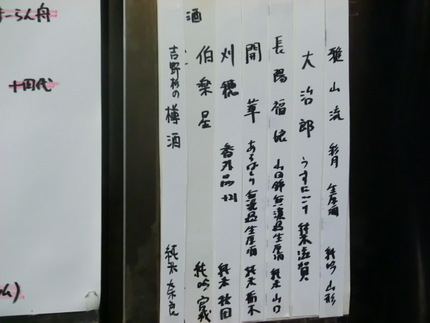 酒
雅山流 彩月 生原酒 純吟 山形
大治郎 うすにごり 純米 滋賀
長陽福娘 山田錦 無濾過生原酒 純米 山口
開華 あらばしり 無濾過生原酒 純米 栃木
刈穂 番外品 +21 純米 秋田
伯楽星 純吟 宮城
吉野杉の樽酒 純米 奈良
らん舟
十四代